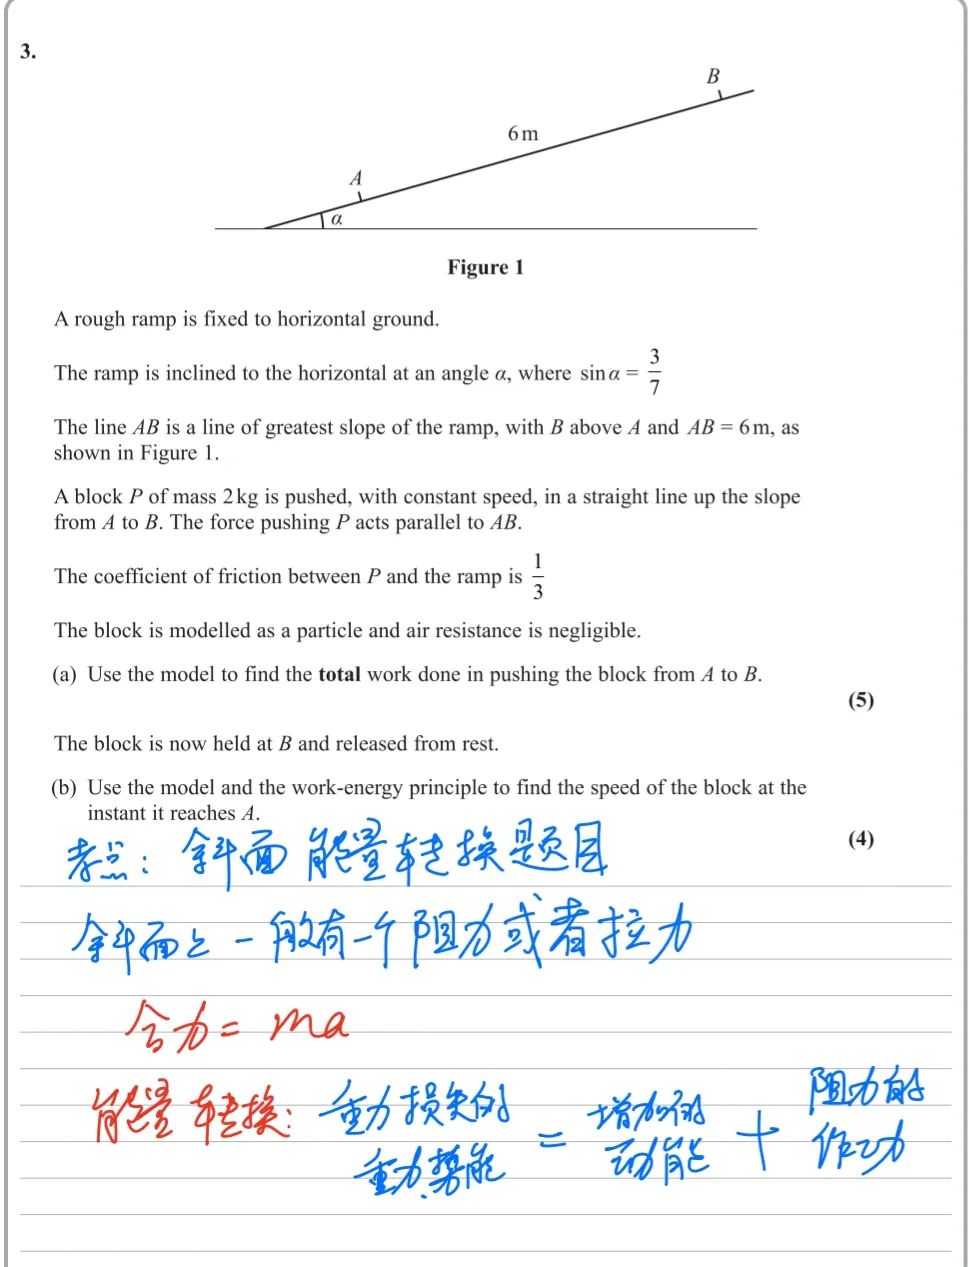 3.
B
6 m
A
α
Figure 1
A rough ramp is fixed to horizontal ground.
The ramp is inclined to the horizontal at an angle α, where sin α = 3/7
The line AB is a line of greatest slope of the ramp, with B above A and AB = 6 m, as
shown in Figure 1.
A block P of mass 2 kg is pushed, with constant speed, in a straight line up the slope
from A to B. The force pushing P acts parallel to AB.
The coefficient of friction between P and the ramp is 1/3
The block is modelled as a particle and air resistance is negligible.
(a) Use the model to find the total work done in pushing the block from A to B.
(5)
The block is now held at B and released from rest.
(b) Use the model and the work-energy principle to find the speed of the block at the
instant it reaches A.
(4)
考点：斜面能量转换题目
斜面上一般有一个阻力或者拉力
合力 = ma
能量转换：重力损失的重力势能 = 增加的动能 + 阻力的作功